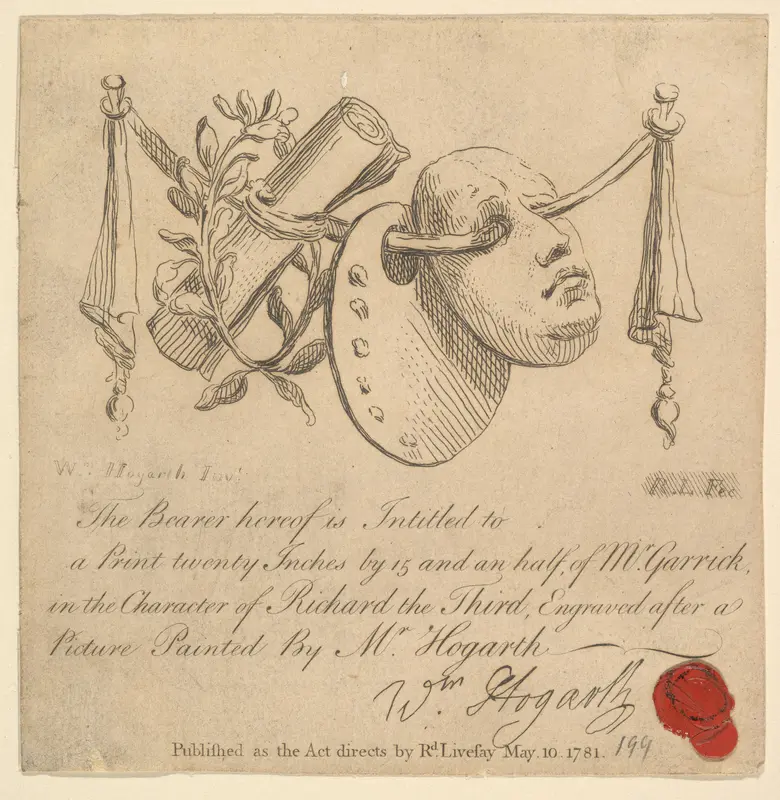 Wm. Hogarth Invt.
R. L. Fec
The Bearer hereof is Intitled to
a Print twenty Inches by 15 and an half, of Mr. Garrick,
in the Character of Richard the Third, Engraved after a
Picture Painted By Mr. Hogarth
Wm Hogarth
Publiſhed as the Act directs by Rd. Liveſay May. 10. 1781.
199